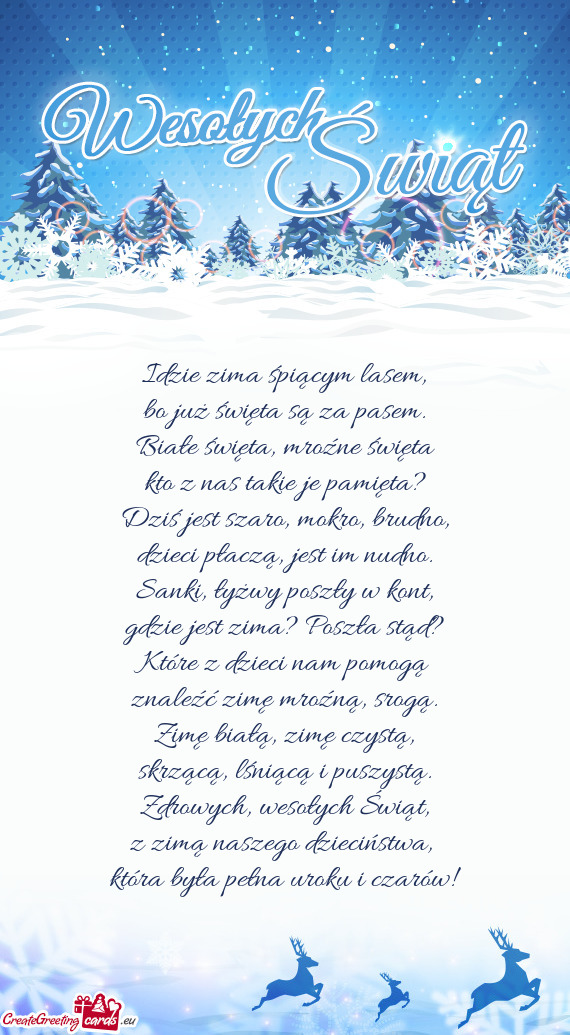 Wesołych
Świąt
Idzie zima śpiącym lasem,
bo już święta są za pasem.
Białe święta, mroźne święta
kto z nas takie je pamięta?
Dziś jest szaro, mokro, brudno,
dzieci płaczą, jest im nudno.
Sanki, łyżwy poszły w kont,
gdzie jest zima? Poszła stąd?
Które z dzieci nam pomogą
znaleźć zimę mroźną, srogą.
Zimę białą, zimę czystą,
skrzącą, lśniącą i puszystą.
Zdrowych, wesołych Świąt,
z zimą naszego dzieciństwa,
która była pełna uroku i czarów!
CreateGreeting cards .eu